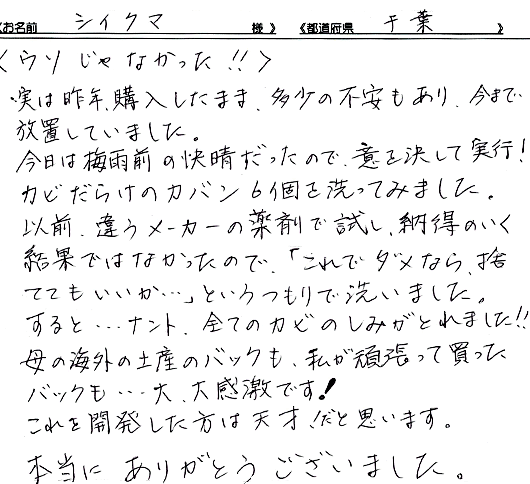 《お名前 シイクマ 様》 《都道府県 千葉 》
〈ウソじゃなかった!!〉
・実は昨年、購入したまま、多少の不安もあり、今まで
放置していました。
今日は梅雨前の快晴だったので、意を決して実行!
カビだらけのカバン6個を洗ってみました。
以前、違うメーカーの薬剤で試し、納得のいく
結果ではなかったので、「これでダメなら、捨
ててもいいか…」というつもりで洗いました。
すると…ナント、全てのカビのしみがとれました!!
母の海外の土産のバックも、私が頑張って買った
バックも…大、大感激です!
これを開発した方は天才!だと思います。
本当にありがとうございました。